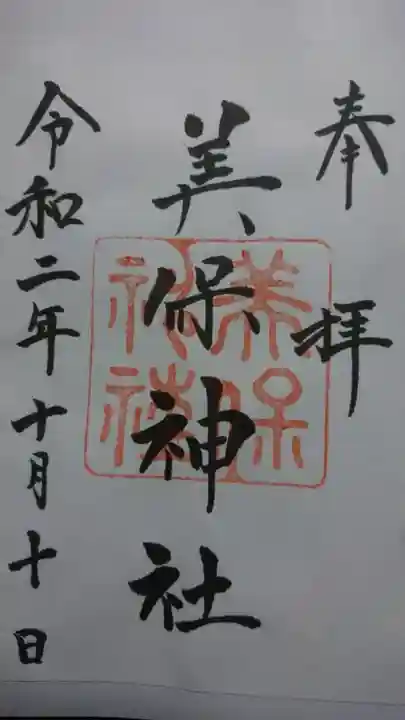 奉拝
美保神社
令和二年十月十日
美保